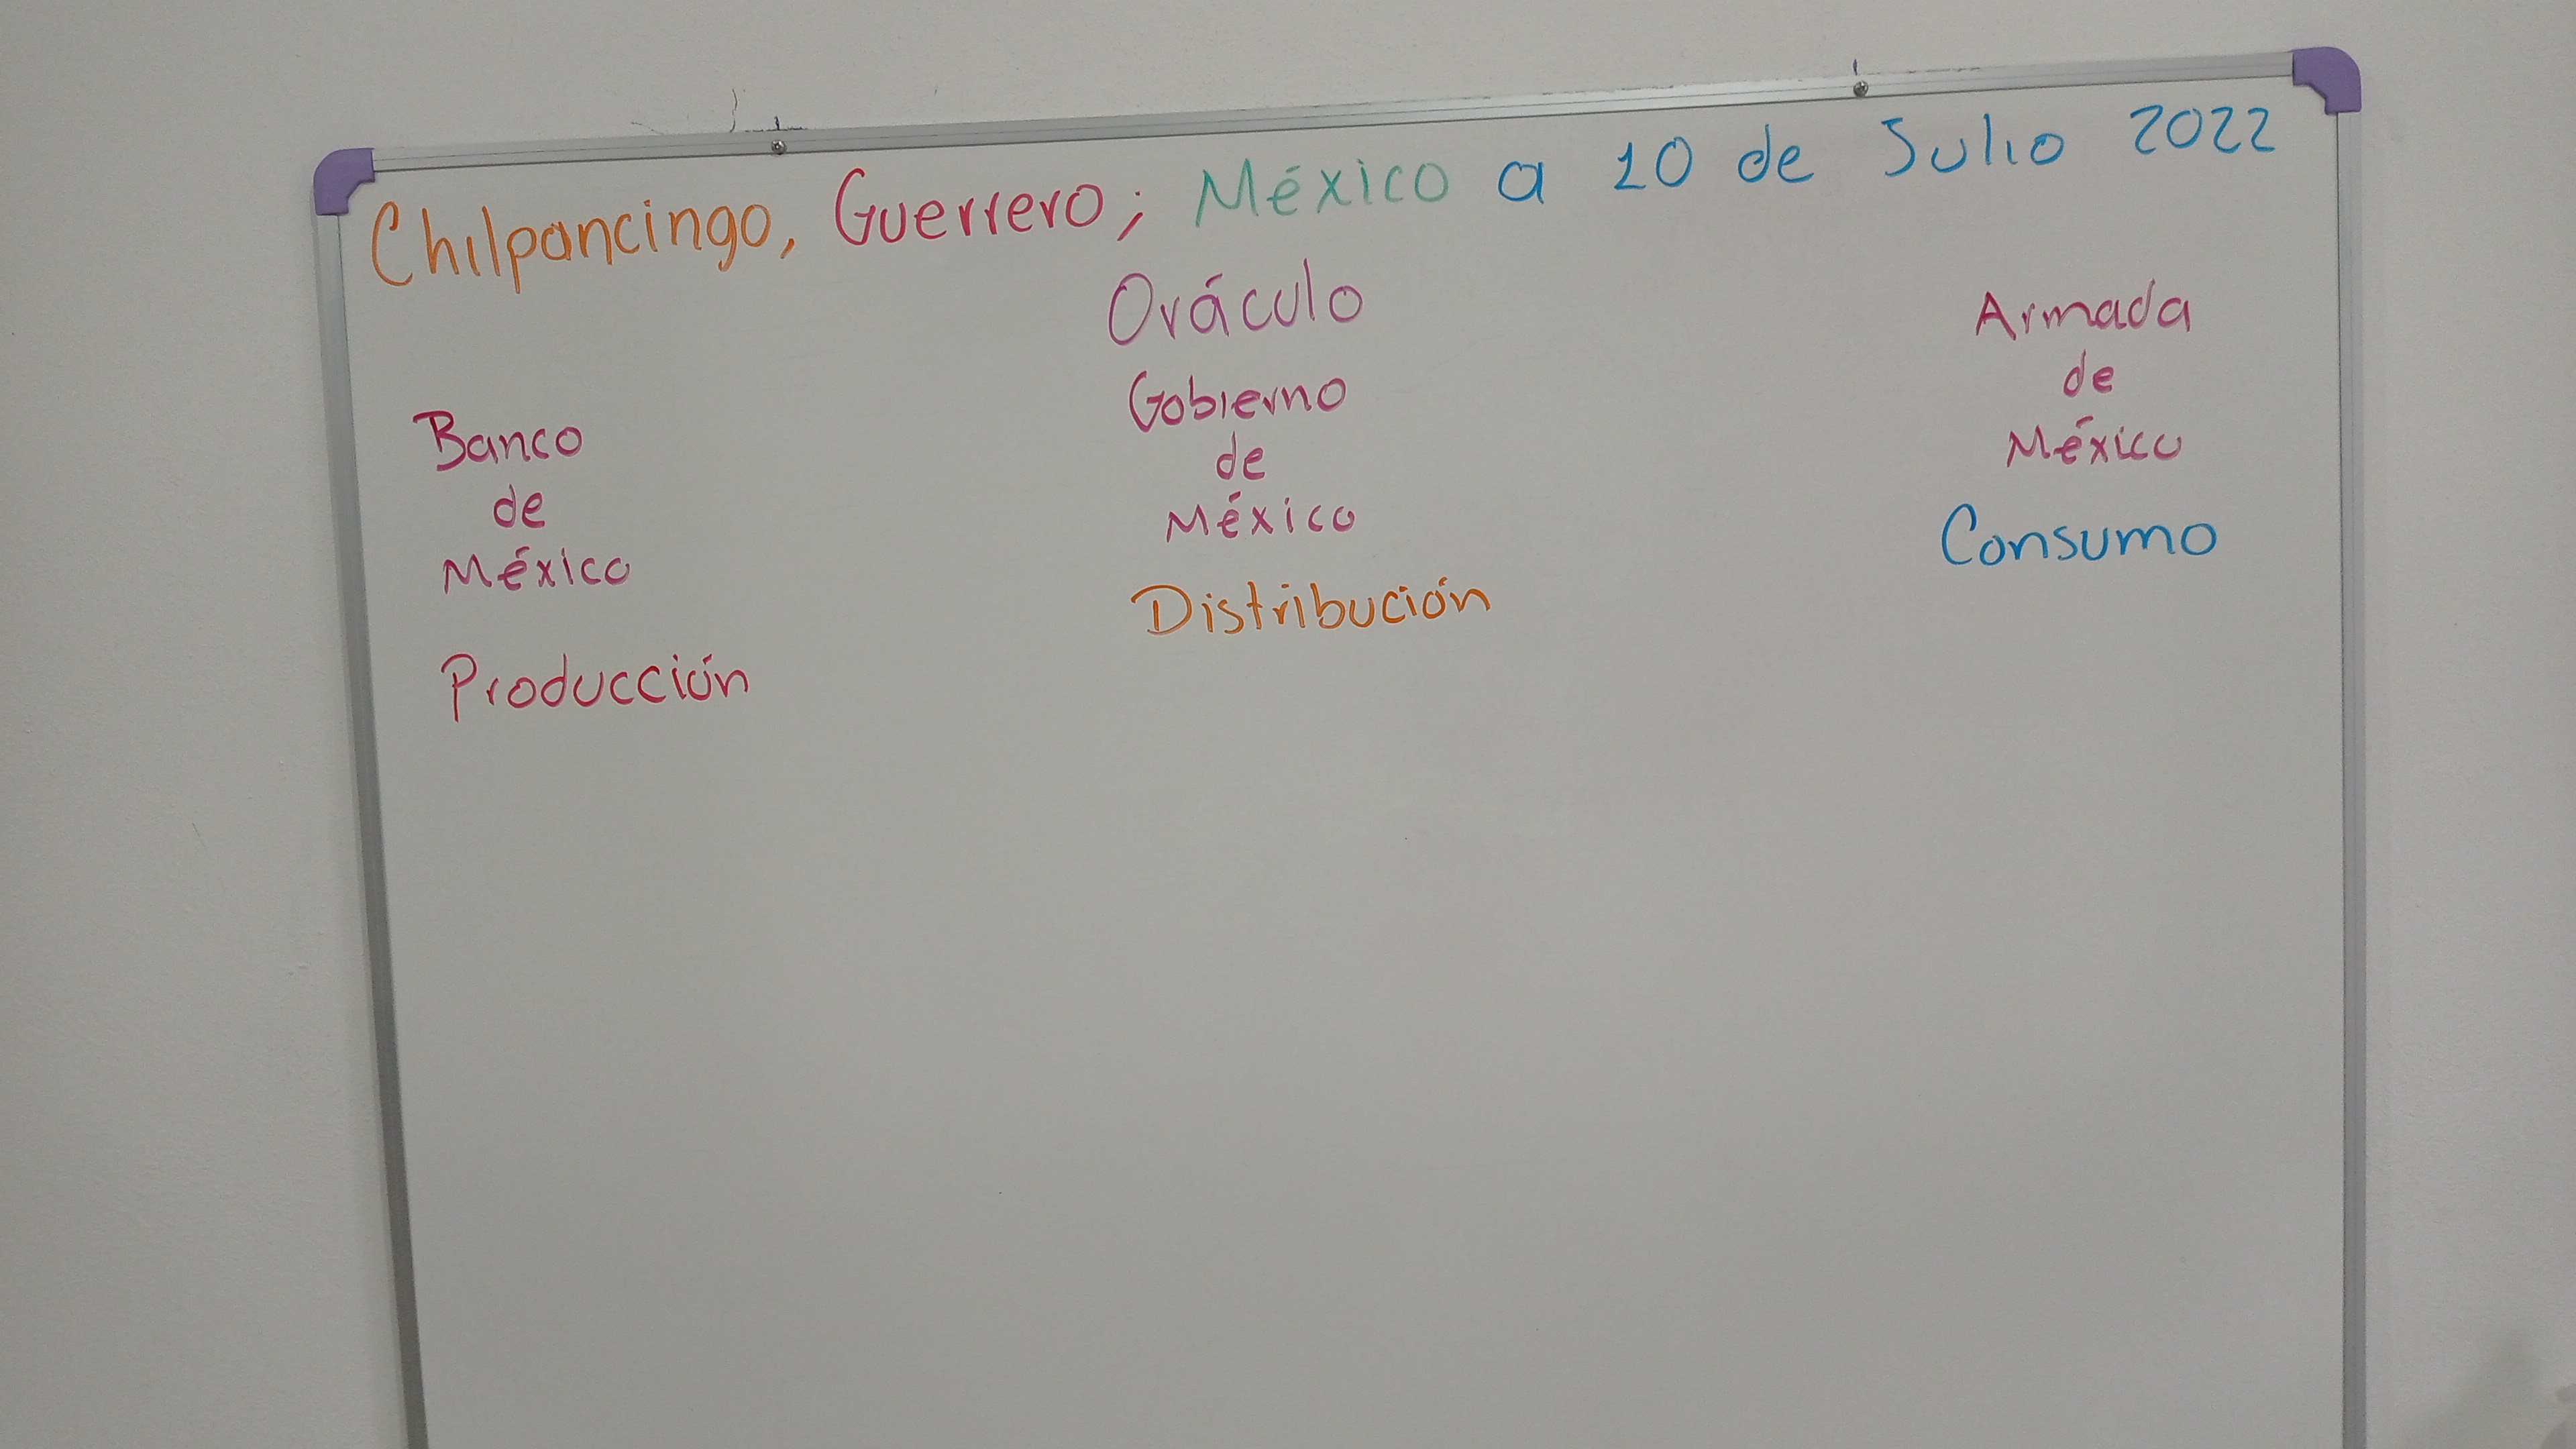 Chilpancingo, Guerrero; México a 10 de Julio 2022
Oráculo
Banco
de
México
Producción
Gobierno
de
México
Distribución
Armada
de
México
Consumo